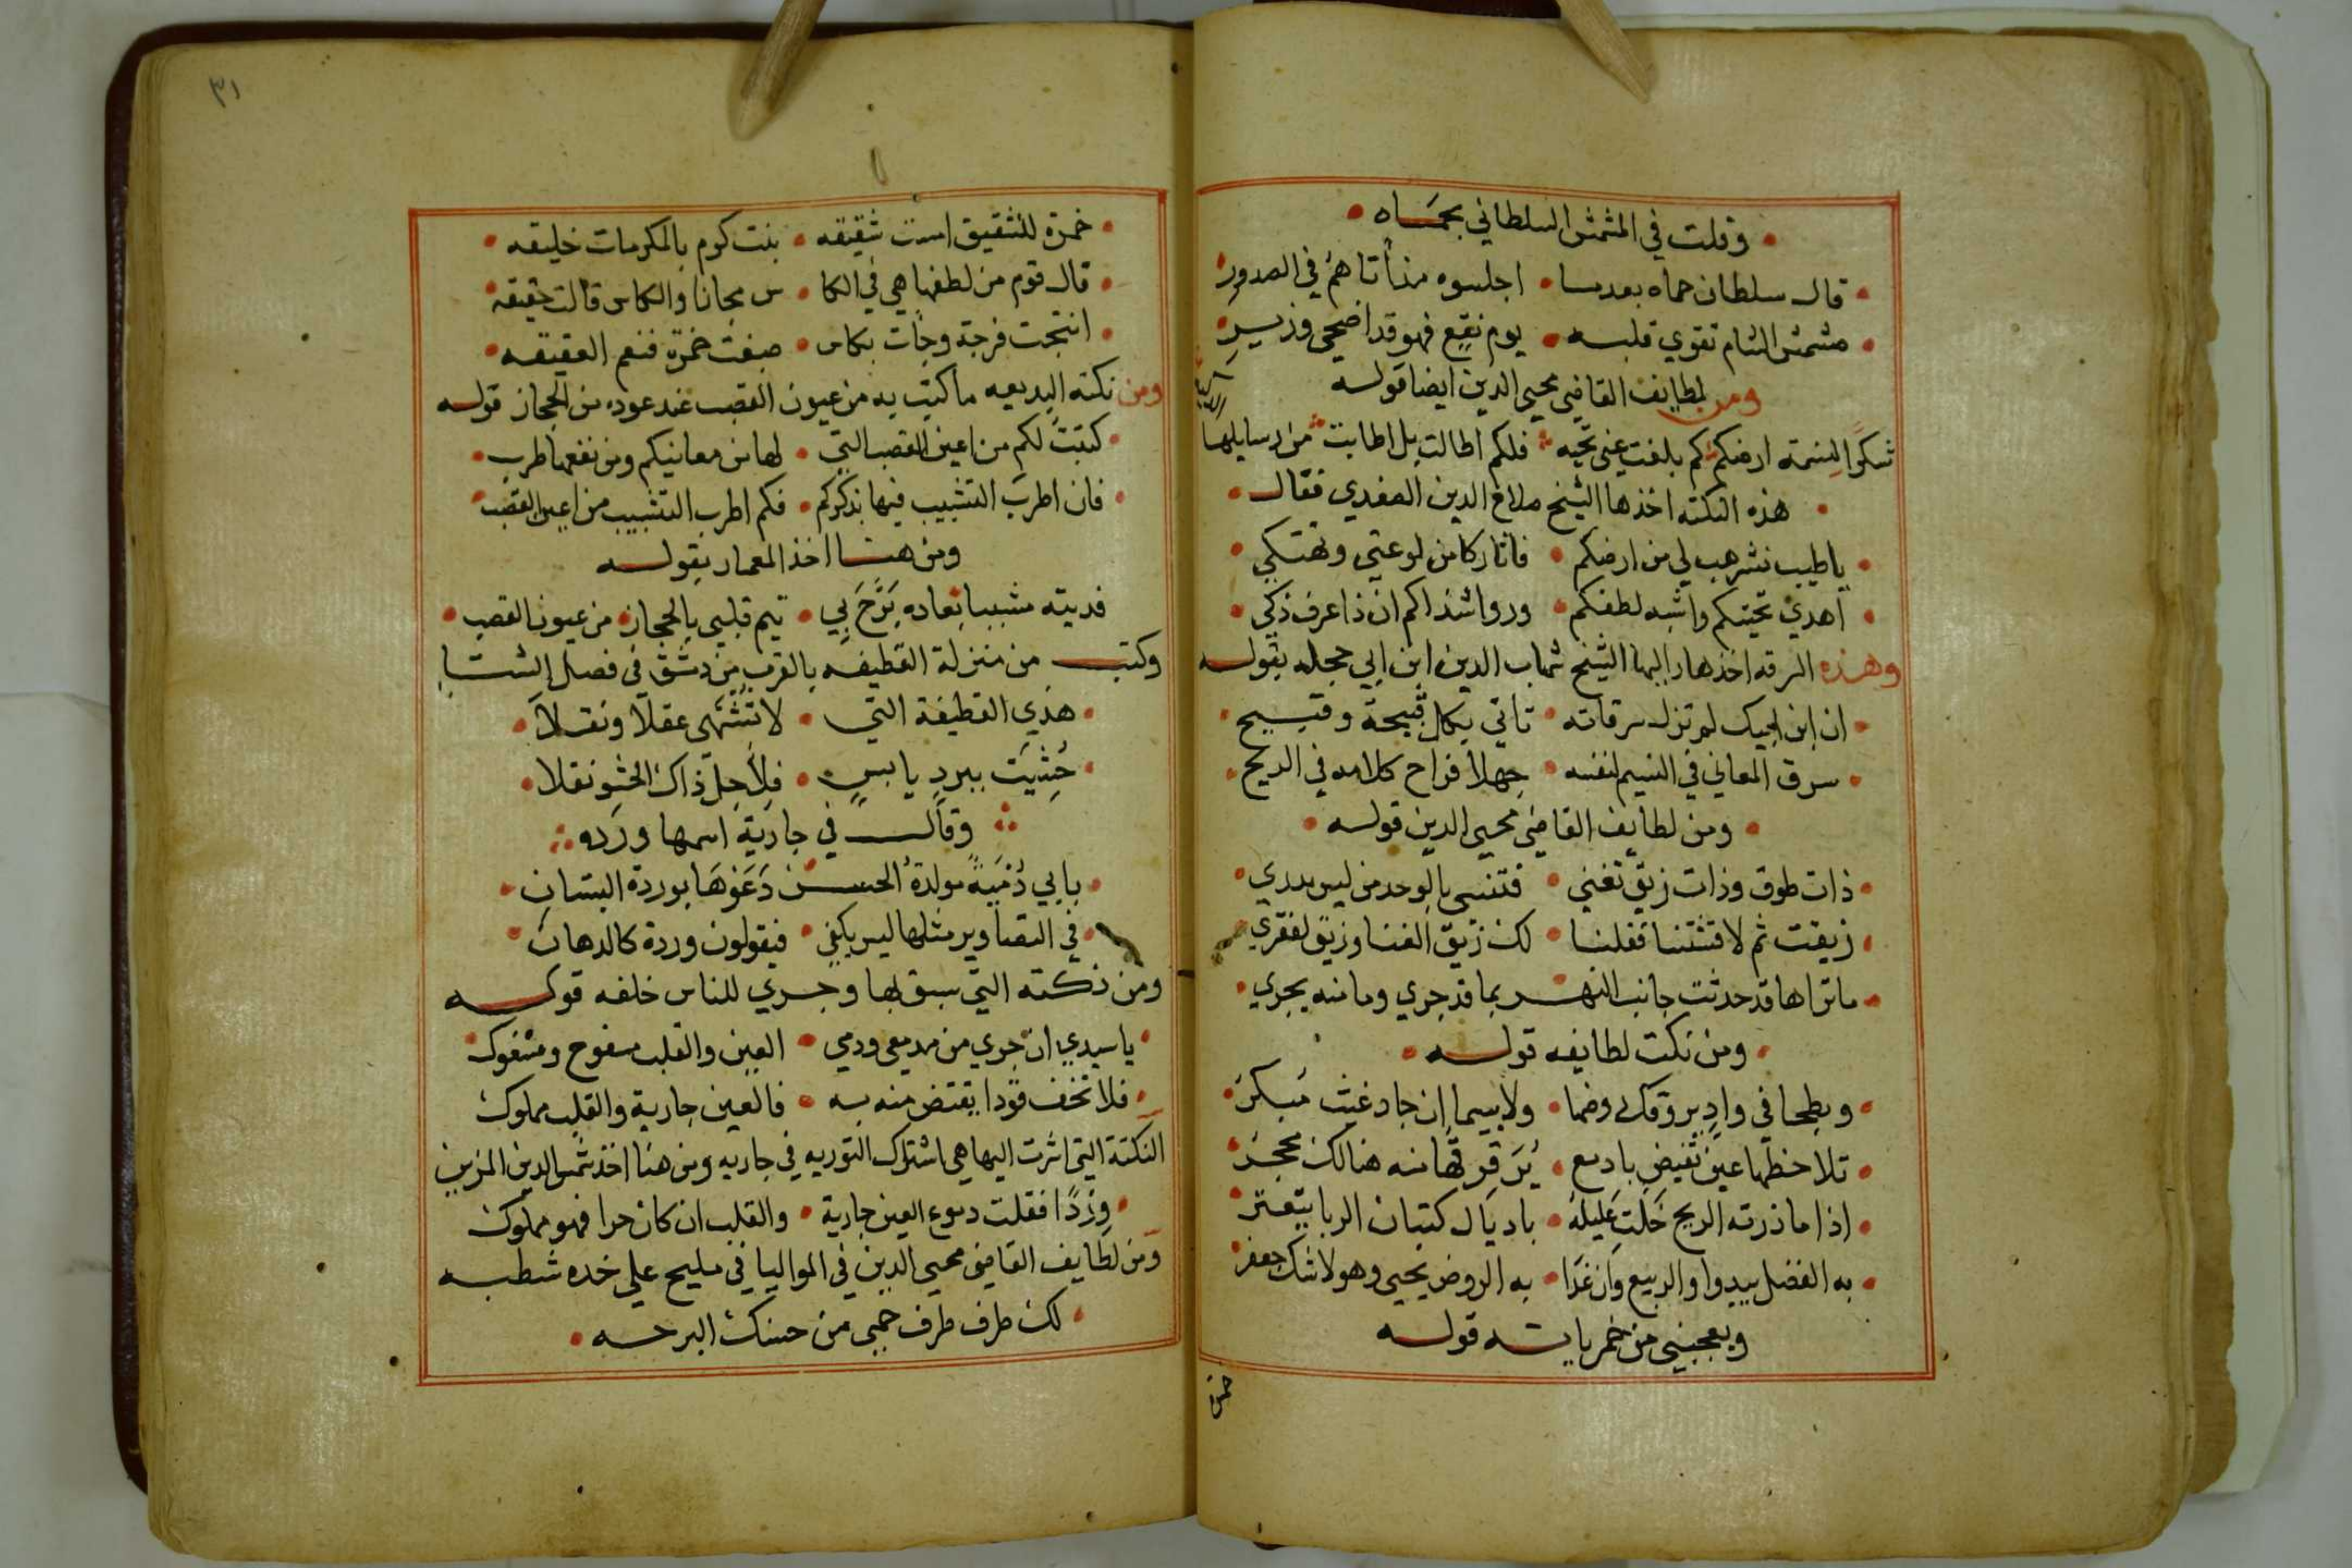 وقلت في المشمش السلطاني بحماه
قال سلطان حماه بعدما اجلسوه منأتاهم في الصدور
مشمش الشام تقوي قلبه يوم نقيع فهو قد اضحي وزير
ومن لطايف القاضي محيي الدين ايضا قوله
شكرا لنسمة ارضكم كم بلغت عني تحيه فلكم اطالت بل اطابت من رسايلها
هذه النكته اخذها الشيخ صلاح الدين الصفدي فقال
ياطيب نشر هب لي من ارضكم فاثار كامن لوعتي وتهتكي
اهدي تحيتكم واشبه لطفكم وروا شذاكم ان ذا عرف ذكي
وهذه السرقه اخذها الشيخ شهاب الدين ابن ابي حجله بقوله
ان ابن ايبك لم تزل سرقاته تاتي بكل قبيحة وقبيح
سرق المعاني في النسيم لنفسه جهلا فراح كلامه في الريح
ومن لطايف القاضي محيي الدين قوله
ذات طوق وذات زيق تغني فتنسى بالوحد من ليس يدري
زيقت ثم لاقشتنا فقلنا لك زيق الغنا وزيق لفقري
ماتراها قد حدثت جانب النهر بما قد جري وما منه يجري
ومن نكت لطايفه قوله
وبطحا في واد يروقك روضها ولاسيما ان جاد غيث مبكر
تلاحظها عين تفيض بادمع يرقرقها منه هنالك محجر
اذا ما ذرته الريح خلت عليلة باديال كتبان الربا يتعثر
به الفضل يبدوا والربيع وان غدا به الروض يحيي وهو لا شك جعفر
ويعجبني من خمرياته قوله
خمرة
٣١
خمرة للشقيق است شقيقه بنت كرم بالمكرمات خليقه
قال قوم من لطفها هي في الكا س مجانا والكاس قالت حقيقه
انتجت فرجة وجأت بكاس صبغت خمرة فنعم العقيقه
ومن نكته البديعه ماكتب به من عيون القصب عند عوده من الحجاز قوله
كتبت لكم من اعين القصب التي لها من معانيكم ومن نفعها طرب
فان اطرب التشبيب فيها بذكركم فكم اطرب التشبيب من اعين القصب
ومن هنا اخذ المعمار بقوله
فديته مشببا بعاده برح بي تيم قلبي بالحجاز من عيون القصب
وكتب من منزلة القطيفه بالقرب من دمشق في فصل الشتا
هذي القطيفة التي لا تشتهى عقلا ونقلا
حشيت ببرد يابس فلاجل ذاك الحشو نقلا
وقال في جارية اسمها ورده
بابي دمية مولدة الحسن دعوها بوردة البستان
في التصاوير مثلها ليس يكفي فيقولون وردة كالدهان
ومن نكته التي سبق لها وجري للناس خلفه قوله
ياسيدي ان جري من مدمعي ودمي العين والقلب مسفوح ومسفوك
فلا تخف قودا يقتض منه به فالعين جارية والقلب مملوك
النكتة التي اشرت اليها هي اشتراك التوريه في جاريه ومن هنا اخذ شمس الدين المزين
وزدا فقلت دموع العين جارية والقلب ان كان حرا فهو مملوك
ومن لطايف القاضي محيي الدين في المواليا في مليح علي خده شطبه
لك طرف طرف حبي من حسنك البرحه